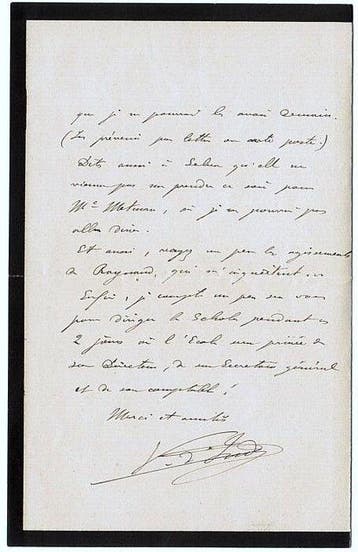 que je ne pourrai les avoir demain.
(Les prévenir par lettre ou carte postale.)
Dites aussi à Selva qu'elle ne
vienne pas me prendre ce soir pour
Mme où je ne pourrai pas
aller dîner.
Et aussi, voyez un peu les agissements
de Raynaud, qui m'inquiètent...
Enfin, je compte un peu sur vous
pour diriger la Schola pendant ces
2 jours où l'Ecole sera privée de
son Directeur, de son Secrétaire général
et de son comptable !
Merci et amitiés
V. d'Indy